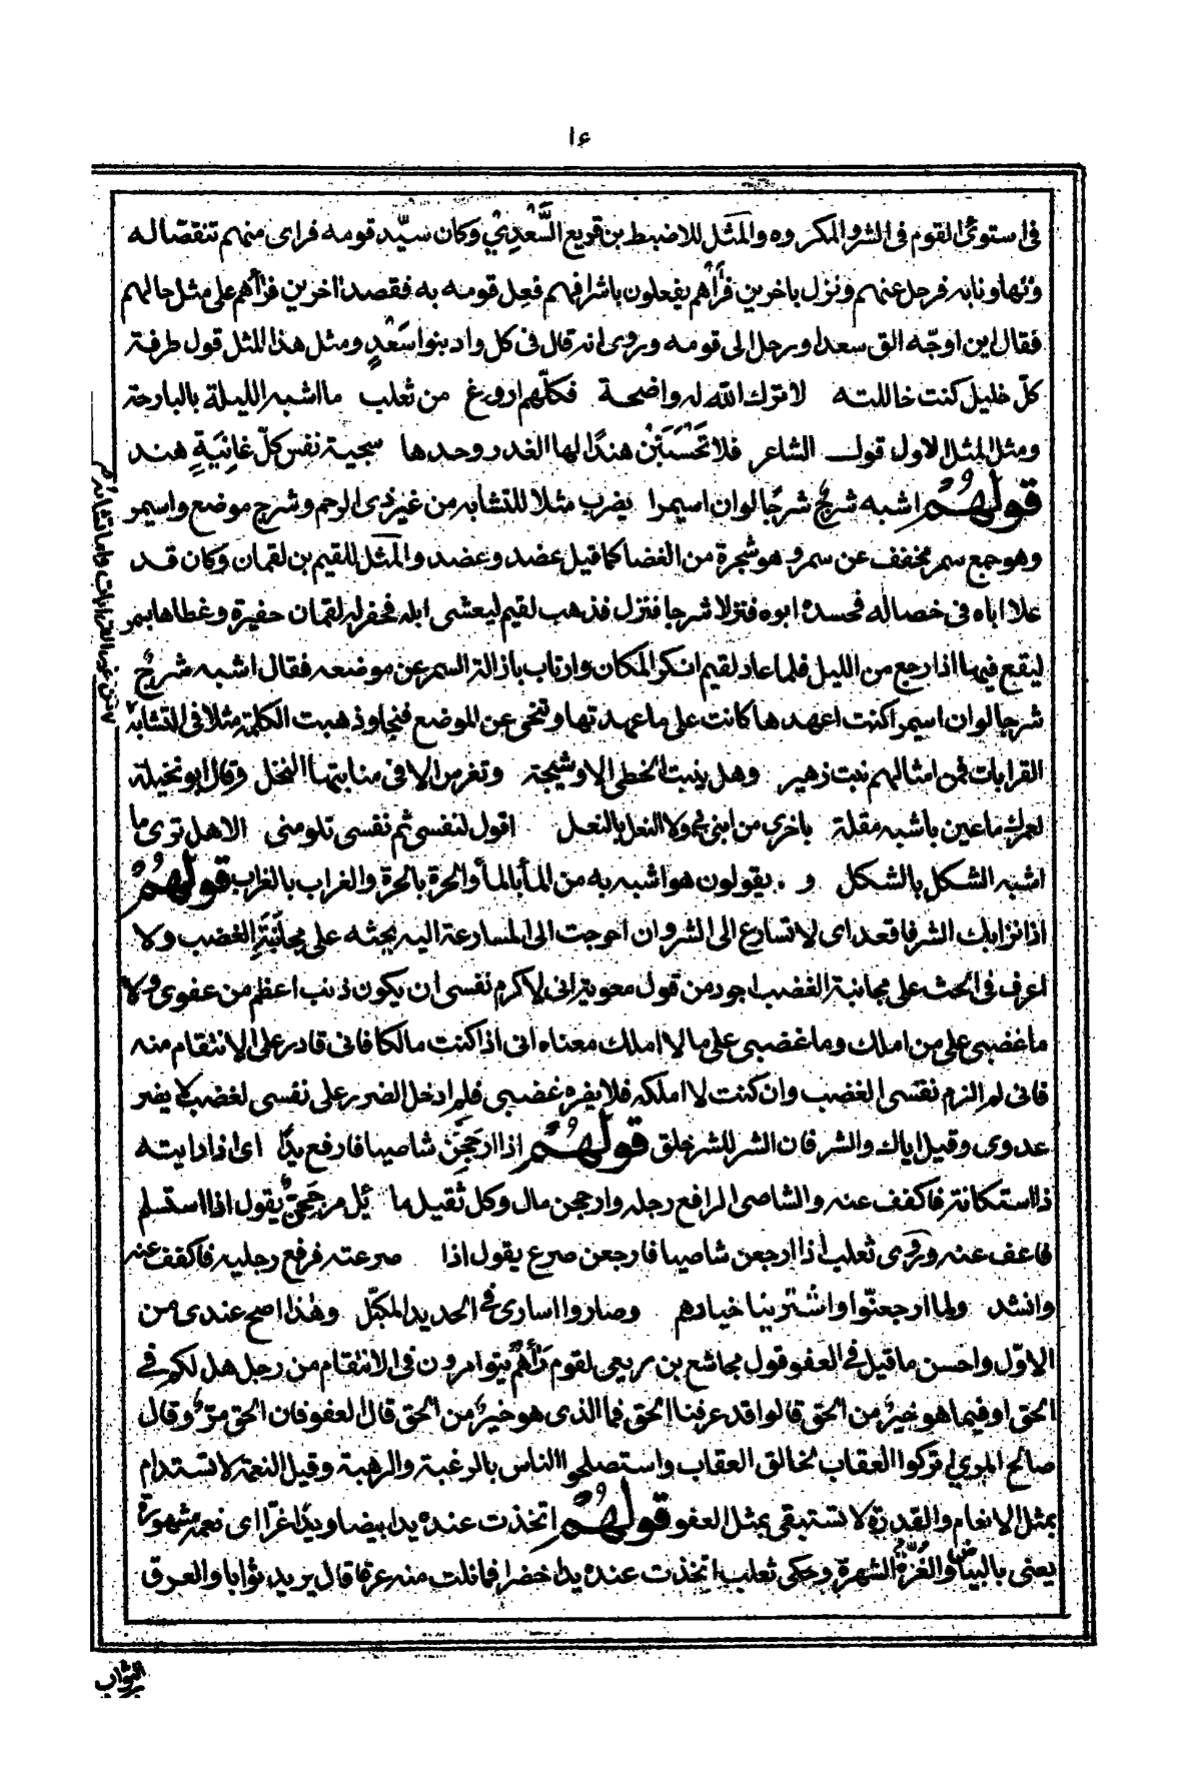 ١٤
فى استوئ القوم فى الشر والمكروه والمَثَل للاضبط بن قويع السَّعْدِىّ وكان سيّد قومه فراى منهم تنقصا له
وتهاونا به فرحل عنهم ونزل باخرين فرَاٰهم يفعلون باشرافهم فعل قومه به فقصد اٰخرين فراٰهم على مثل حالهم
فقال اين اوجّه الق سعدا ورحل الى قومه وروى انه قال فى كل واد بنوا سَعْدٍ ومثل هذا المثل قول طرفة
كلّ خليل كنت خاللته لا ترك الله له واضحة فكلّهم اروغ من ثعلب ما اشبه الليلة بالبارحة
ومثل المثل الاول قول الشاعر فلا تَحْسَبَنْ هندًا لها الغدر وحدها سجية نفس كلّ غانيَةٍ هند
قولهُم اشبه شرجٌ شرجًا لو ان اسيمرا يضرب مثلا للتشابه من غير ذى الرحم وشرج موضع واسيمر
وهو جمع سمر مخفف عن سمر وهو شجرة من الغضا كما قيل عضد وعضد والمثل للقيم بن لقمان وكان قد
علا اباه فى خصاله فحسده ابوه فنزلا شرجا فنزل فذهب لقيم ليعشى ابله فحفر له لقمان حفيرة وغطاها بسمر
ليقع فيها اذا رجع من الليل فلما عاد لقيم انكر المكان وارتاب بازالة السمر عن موضعه فقال اشبه شرجٌ
شرجا لو ان اسيمرا كنت اعهدها كانت على ما عهدتها وتنحى عن الموضع فنجا وذهبت الكلمة مثلا فى التشابه
القرابات فمن امثالهم نبت زهير وهل ينبت الخطى الا وشيجة وتغرس الا فى منابتها النخل وقال ابو نخيلة
لعمرك ما عين باشبه مقلة باخرى من ابنى بى ولا النعل بالنعل اقول لنفسى ثم نفسى تلومنى الا هل ترى ما
اشبه الشكل بالشكل و يقولون هو اشبه به من المأ بالمأ والحرة بالحرة والغراب بالغراب قولهُم
اذا نزا بك الشر فاقعد اى لا تسارع الى الشر وان احوجت الى المسارعة اليه يحثه على مجانَبَةِ الغضب ولا
اعرف فى الحث على مجانبة الغضب اجود من قول معوية انى لا كرم نفسى ان يكون ذنب اعظم من عفوى ولا
ما غضبى على من املك وما غضبى على ما لا املك معناه انى اذا كنت مالكا فانى قادر على الانتقام منه
فانى لم الزم نفسى الغضب وان كنت لا املكه فلا يضره غضبى فلم ادخل الضرر على نفسى لغضب لا يضر
عدوى وقيل اياك والشر فان الشر للشر خلق قولهُم اذا ارجَحَنَّ شاصيا فارفع يدًا اى اذا رايته
ذا استكانة فاكفف عنه والشاصى الرافع رجله وارجحن مال وكل ثقيل ما ئل مرجحنّ يقول اذا استسلم
فاعف عنه وروى ثعلب اذا ارجعن شاصيا فارجعن صرع يقول اذا صرعته فرفع رجليه فاكفف عنه
وانشد ولما ارجعنّوا واشترينا خيارهم وصاروا اسارى فى الحديد المكبّل وهٰذا اصح عندى من
الاوّل واحسن ما قيل فى العفو قول مجاشع بن ربعى لقوم رَاٰهم يتوامرون فى الانتقام من رجل هل لكم فى
الحق او فيما هو خيرٌ من الحق قالوا قد عرفنا الحق فما الذى هو خيرٌ من الحق قال العفو فان الحق مرٌّ وقال
صالح المرى تركوا العقاب لخالق العقاب واستصلحوا الناس بالرغبة والرهبة وقيل النعمة لا تستدام
بمثل الانعام والقدرة لا تستبقى بمثل العفو قولهُم اتخذت عنده يدا بيضا ويدًا غرّا اى نعمة مشهورة
يعنى بالبياض والغُرّةُ الشهرة وحكى ثعلب اتخذت عنده يدا خضرا فما نلت منه عرقا قال يريد ثوابا والعرق
الثواب